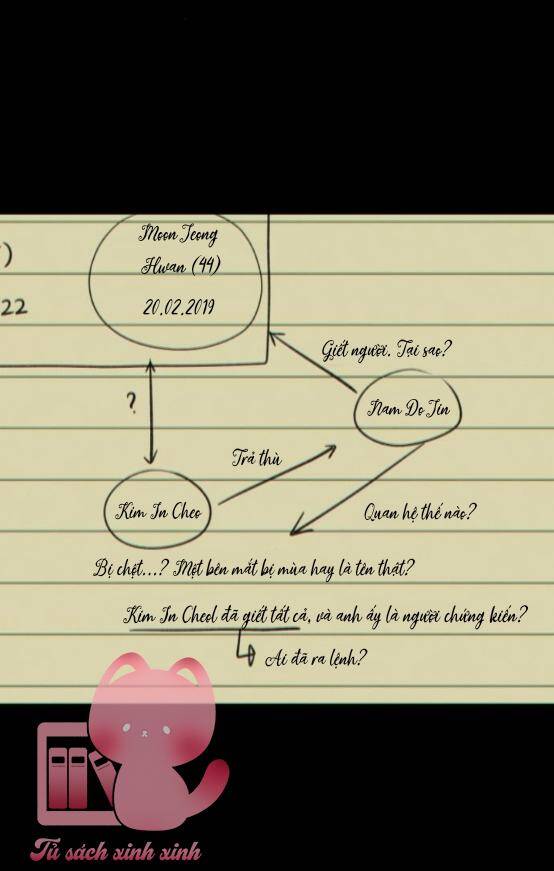 Moon Jeong
Hwan (44)
)
22
20.02.2019
Giết người. Tại sao?
?
Nam Do Jin
Trả thù
Kim In Cheo
Quan hệ thế nào?
Bị chột...? Một bên mắt bị mùa hay là tên thật?
Kim In Cheol đã giết tất cả, và anh ấy là người chứng kiến?
Ai đã ra lệnh?
Tủ sách xinh xinh